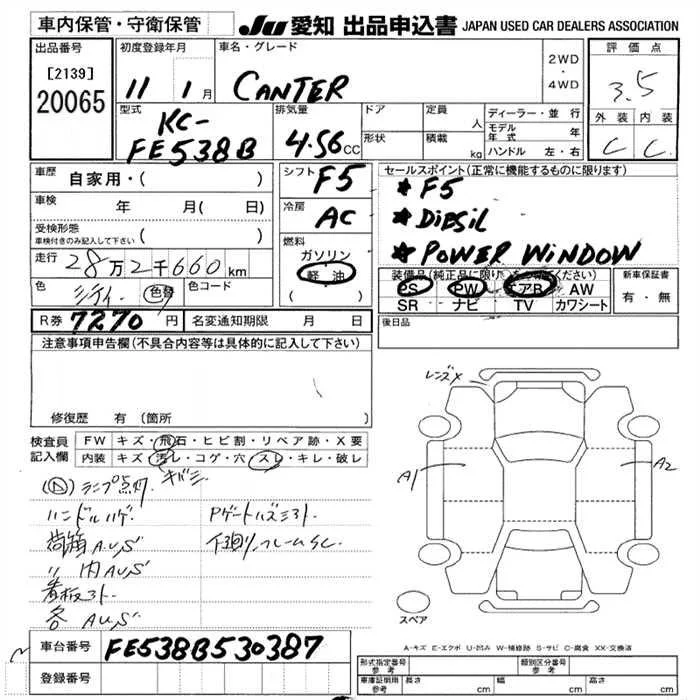 車内保管・守衛保管
JU 愛知 出品申込書 JAPAN USED CAR DEALERS ASSOCIATION
出品番号
[2139]
20065
初度登録年月
11 1月
車名・グレード
CANTER
2WD
・
4WD
評価点
3.5
外装 内装
C C
型式
KC-
FE538B
排気量
4.56cc
ドア
形状
定員 人
積載 kg
ディーラー・並行
モデル年式 年
ハンドル 左・右
車歴 自家用・( )
車検 年 月( 日)
受検形態
車検付きのみ記入して下さい
走行 28万2千660km
色 色替
色コード
シフト F5
冷房 AC
燃料
ガソリン
軽油
( )
セールスポイント(正常に機能するものに限ります)
* F5
* DIESIL
* POWER WINDOW
装備品(純正品に限り)をご記入ください)
PS PW エアB AW
SR ナビ TV カワシート
新車保証書
有・無
後日品
R券 7270円
名変通知期限 月 日
注意事項申告欄(不具合内容等は具体的に記入して下さい)
修復歴 有(箇所 )
検査員
記入欄
FW キズ・飛石・ヒビ割・リペア跡・X要
内装 キズ・汚レ・コゲ・穴・スレ・キレ・破レ
キバミ
ランプ点灯
ハンドルハゲ
荷箱A.U,S
〃内AUS
看板
各 AUS
下廻り,フレームS,C
レンズX
A1
A2
スペア
A-キズ E-エクボ U-凹み W-補修跡 S-サビ C-腐食 XX-交換済
車台番号 FE538B530387
登録番号
形式指定番号
参考
類別区分番号
参考
車庫証明用
参考
長さ cm
幅 cm
高さ cm